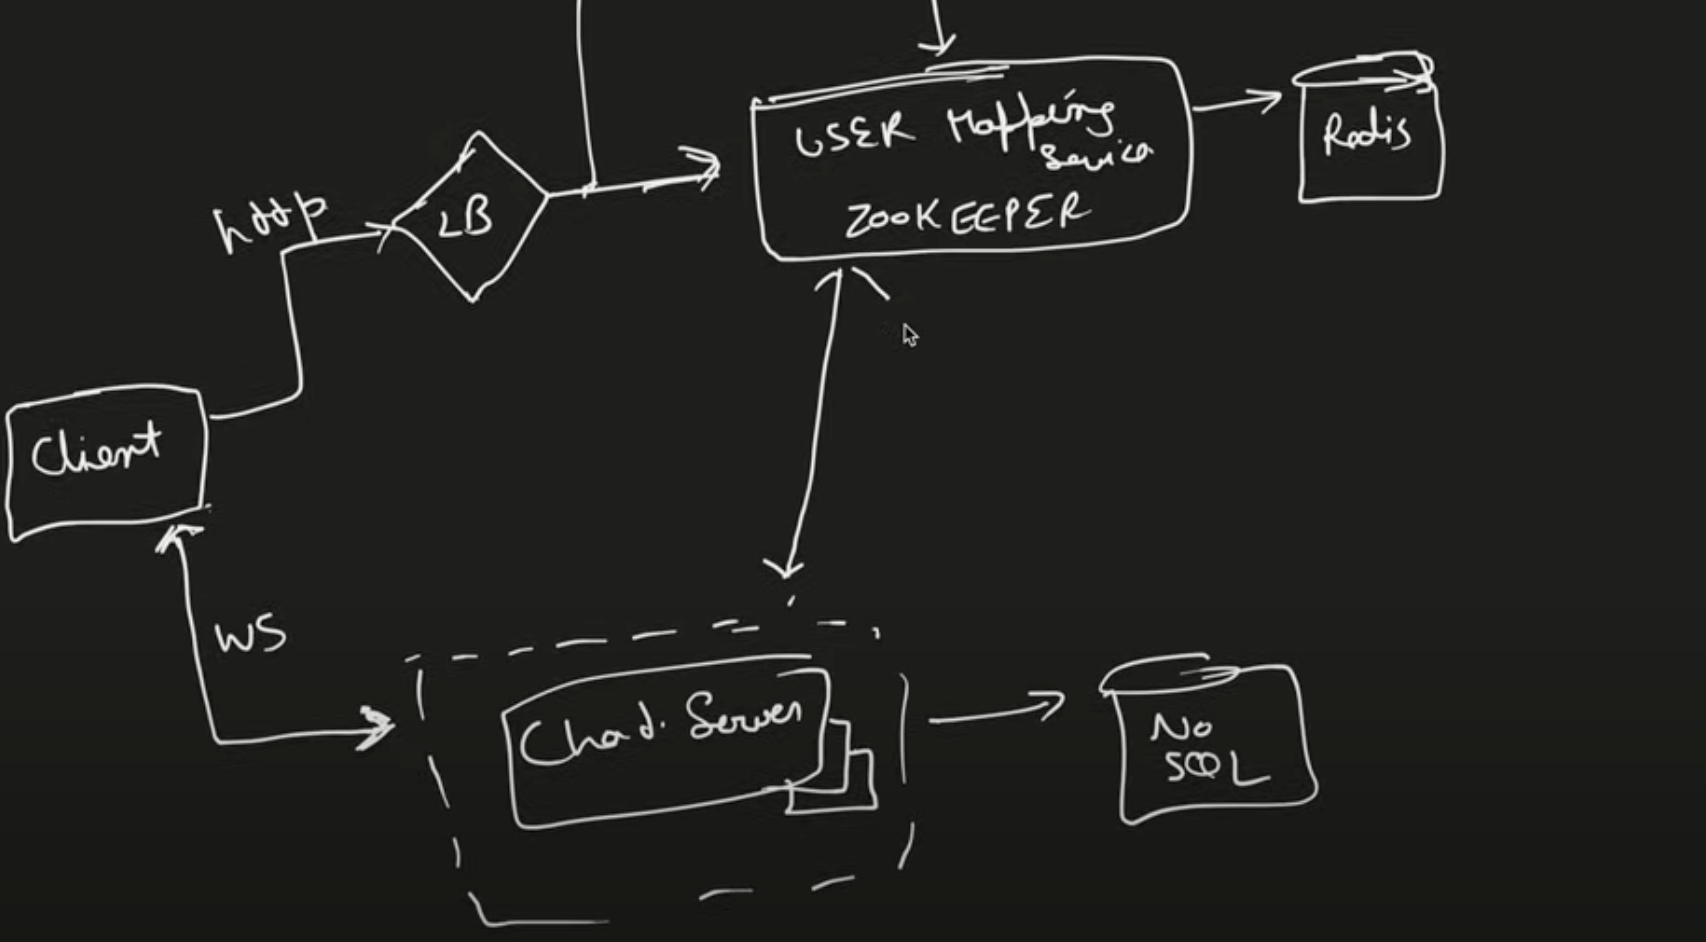 USER Mapping
Service
ZOOKEEPER
Redis
http
LB
Client
WS
Chat Server
No
SQL